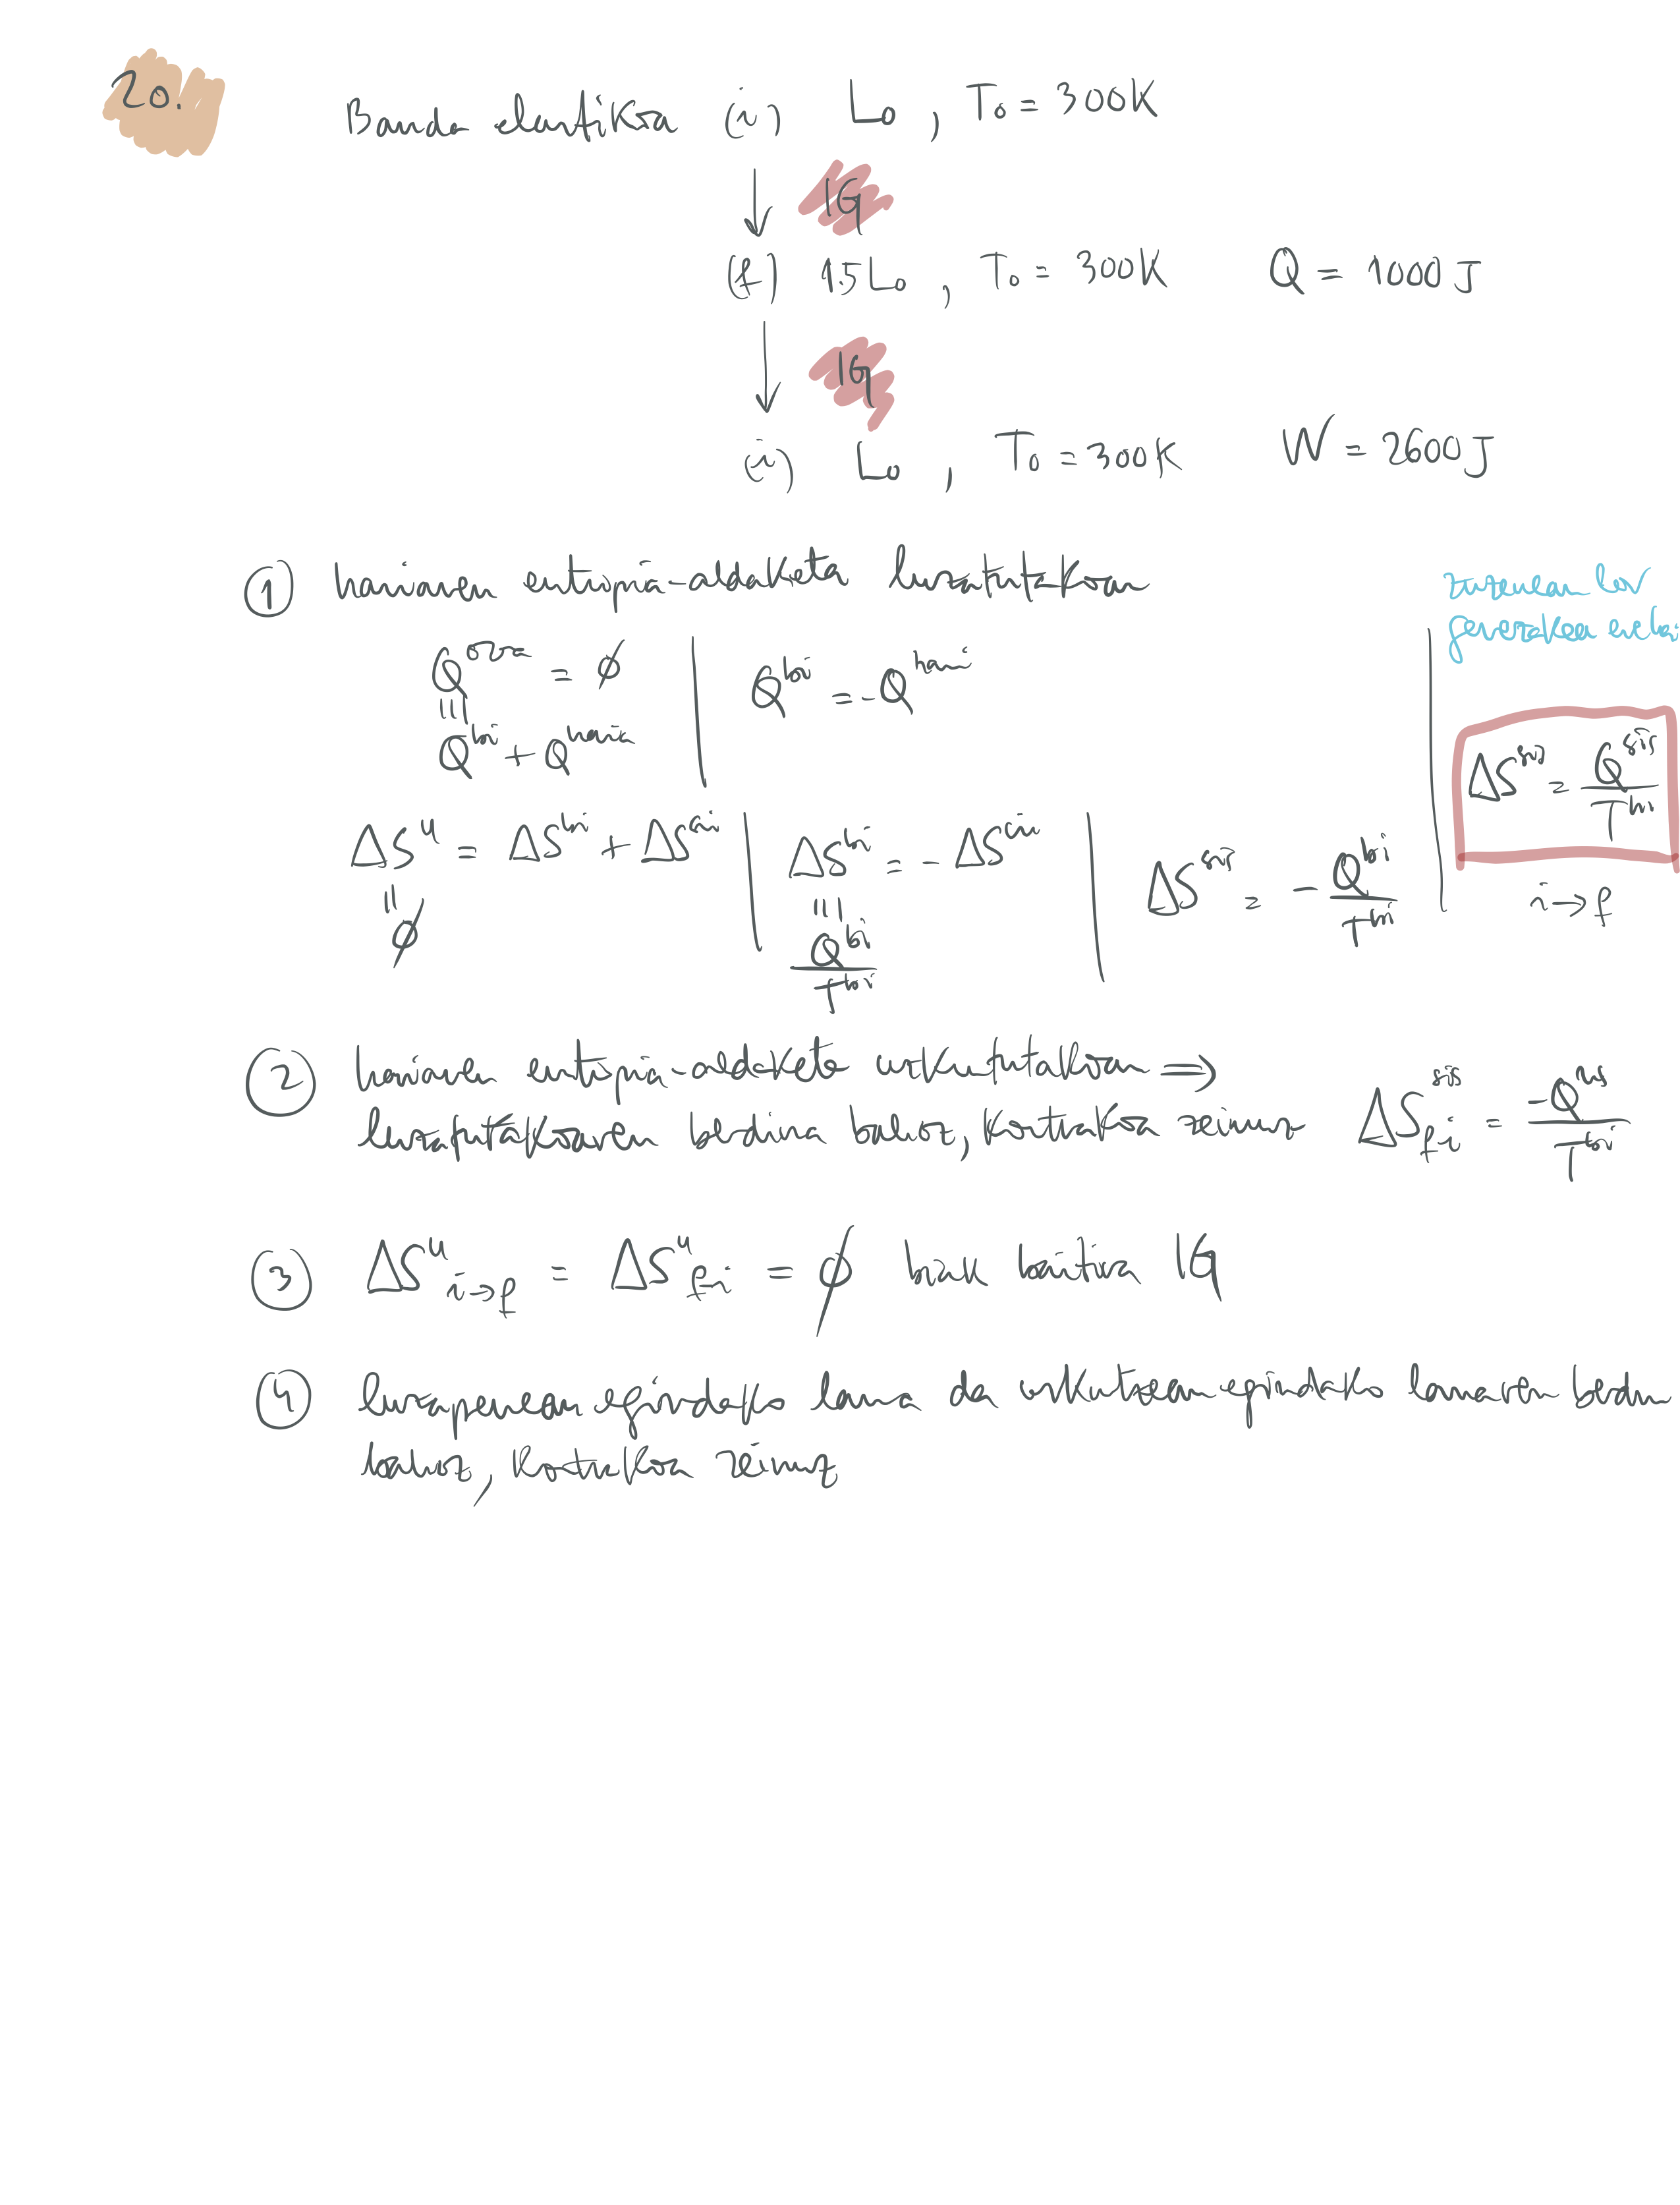 20.
Banda elastikoa (i) L₀ , T₀ = 300K
↓ IG
(f) 1.5L₀ , T₀ = 300K Q = 1000 J
↓ IG
(i) L₀ , T₀ = 300K W = 2600 J
① hariaren entropia-aldaketa luzatutakoan
zuzenean lor
Q = ∅ | Qᵇⁱ = -Qʰᵃʳⁱ
|||
Qᵇⁱ + Qʰᵃʳⁱᵃ
ΔSˢⁱˢ = Qˢⁱˢ / Tᵇⁱ
i → f
ΔSᵘ = ΔSᵇⁱ + ΔS | ΔSᵇⁱ = - ΔS | ΔSˢⁱˢ = - Qᵇⁱ / Tᵇⁱ
||
∅
|||
Qᵇⁱ / Tᵇⁱ
② hariaren entropia-aldaketa uzkurtutakoan ⇒
luzatutakoaren berdina balioz, kontrakoa zeinuz ΔSˢⁱˢ fi = -Q / Tᵇⁱ
③ ΔSᵘ i→f = ΔSᵘ f→i = ∅ biak baitira IG
④ luzapenean egindako lana da uzkutzean egindako lanaren
balioz, kontrakoa zeinuz